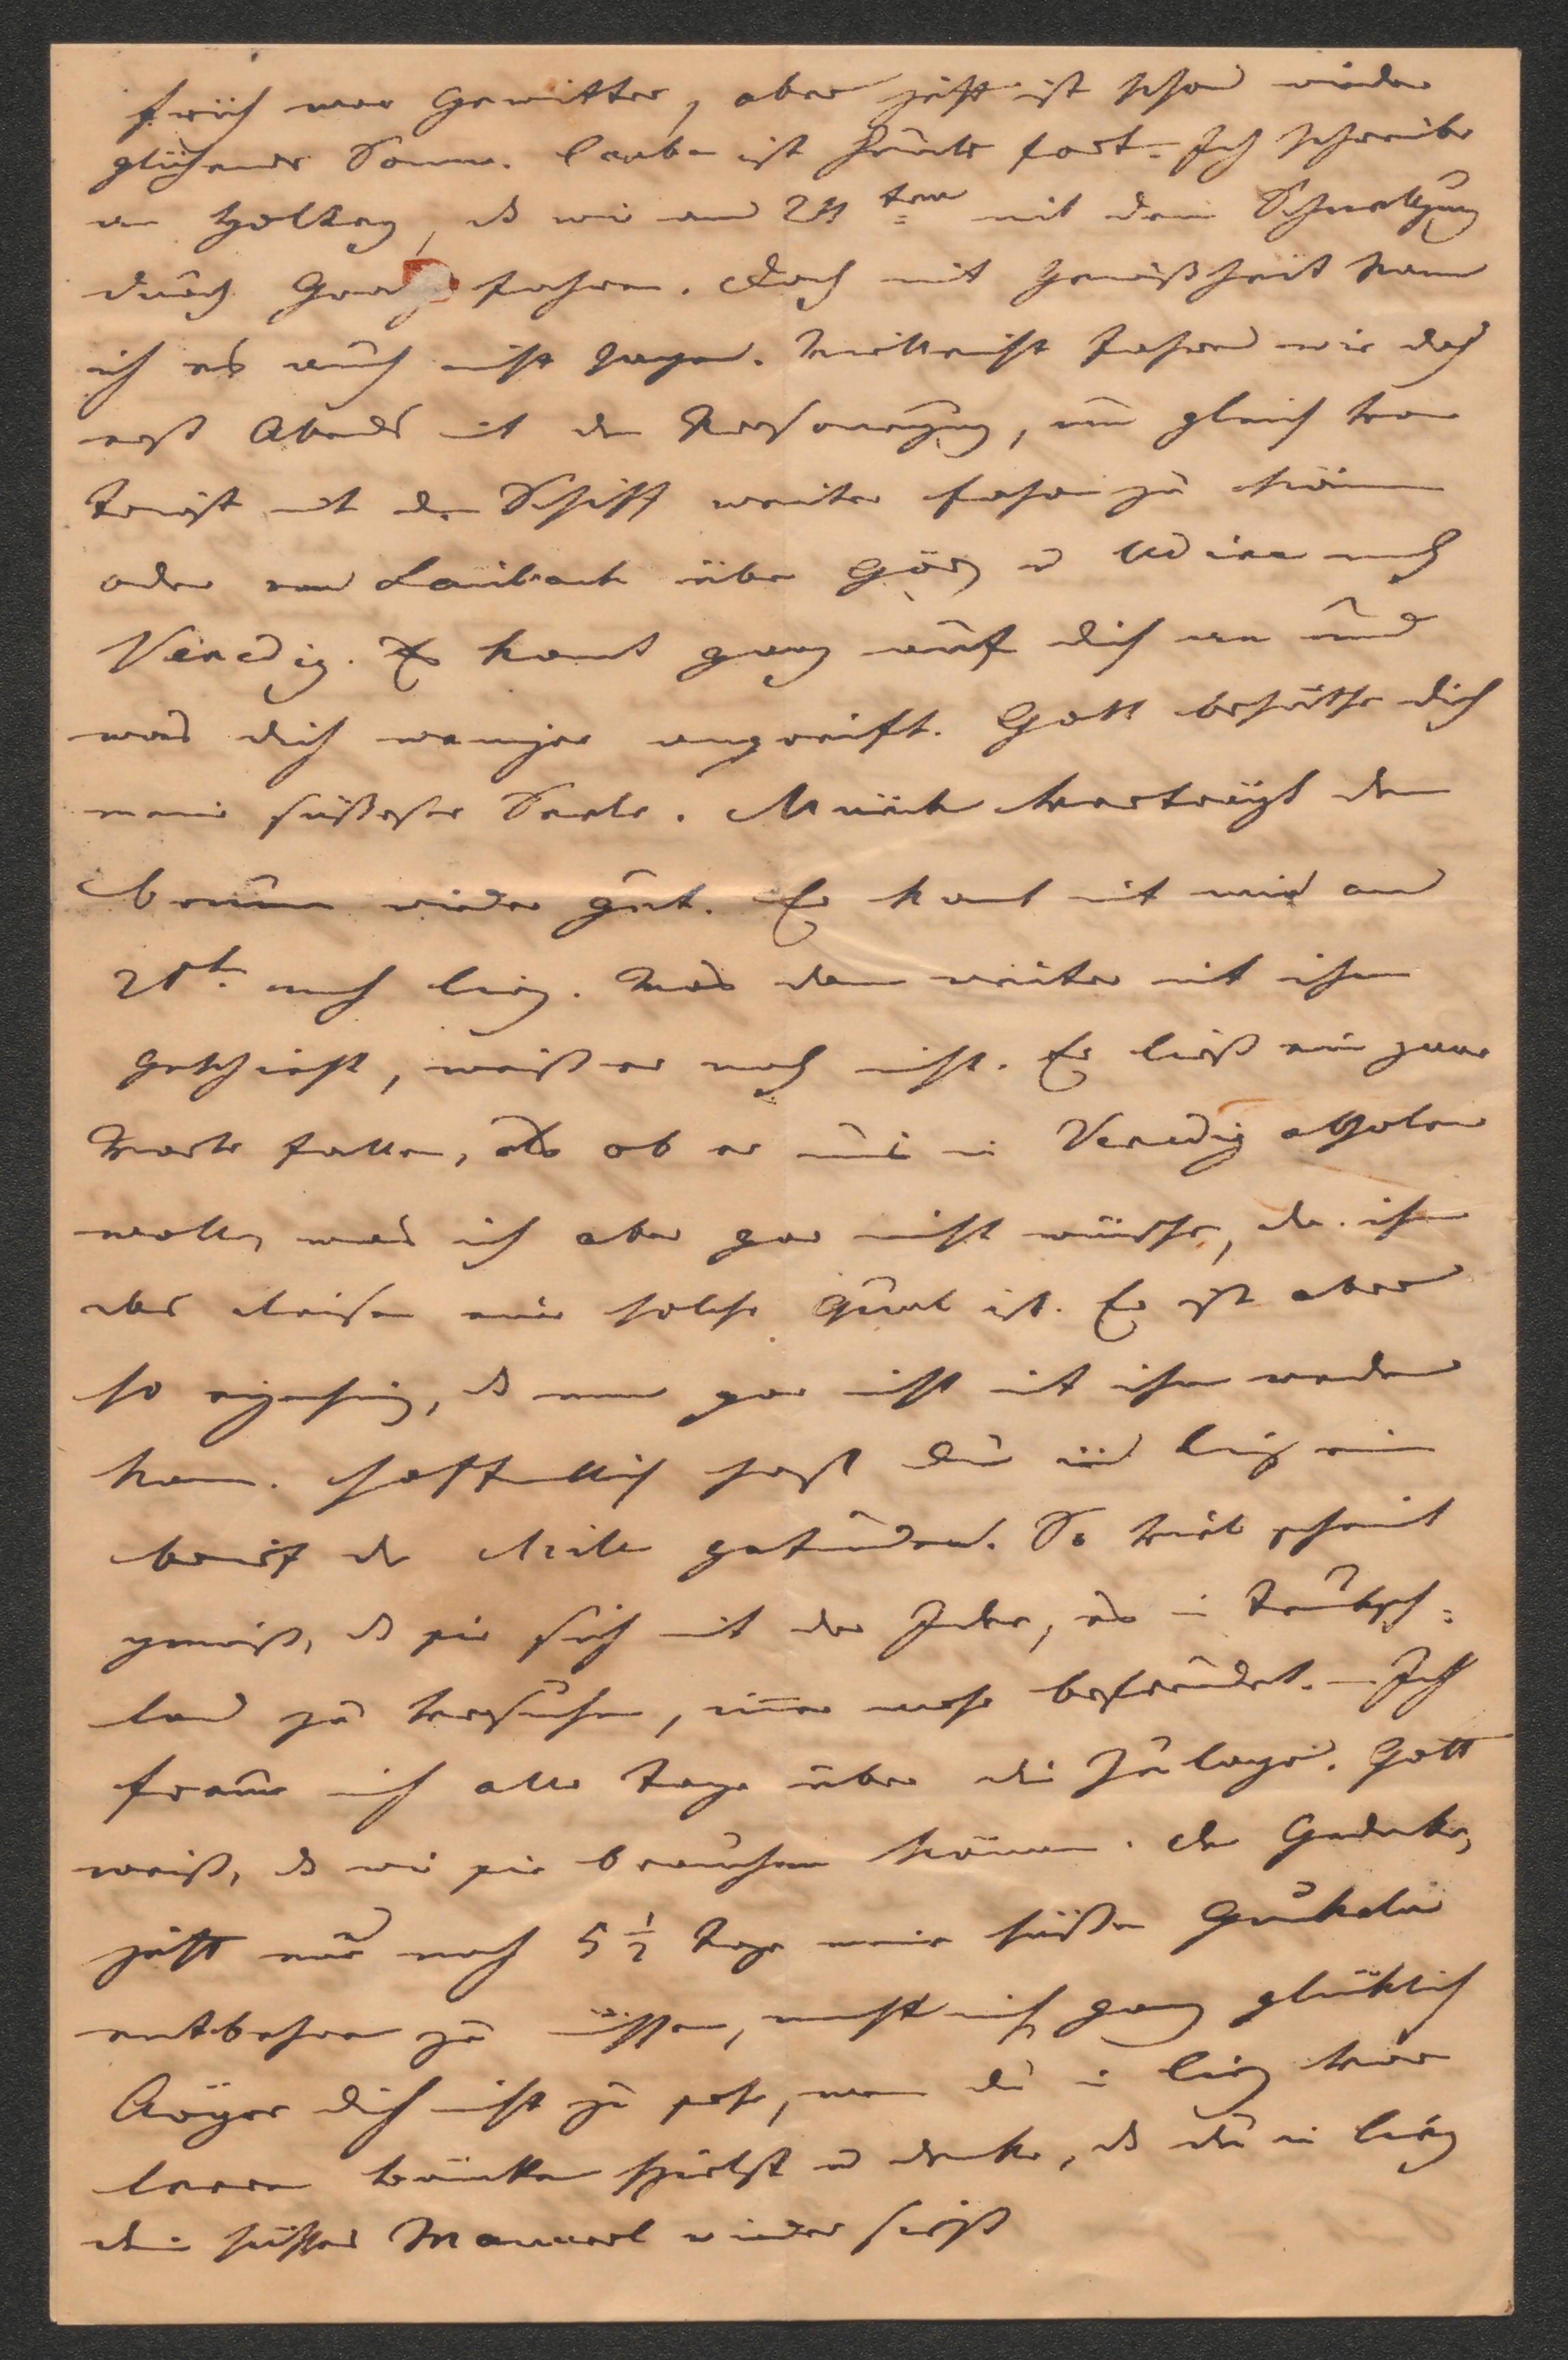 früh war Gewitter, aber jetzt ist schon wieder
glühende Sonne. Laube ist heute fort. Ich schreibe
an Holtey, dß wir am 24ten mit dem Schnellzug
durch Graz fahren. Doch mit Gewißheit kann
ich es auch nicht sagen. Vielleicht fahren wir doch
erst Abends mit dem Personenzug, um gleich von
Triest mit dem Schiff weiter fahren zu können
oder von Laibach über Görz u Udine nach
Venedig. Es komt ganz auf dich an und
was dich weniger angreift. Gott behüthe dich
meine süßeste Seele. Münch verträgt den
Brunnen wieder gut. Er komt mit mir am
21t. nach Linz. Was dann weiter mit ihm
geschieht, weiß er noch nicht. Er ließ ein paar
Worte fallen, als ob er uns in Venedig abholen
wolle, was ich aber gar nicht wünsche, da ihm
das Reisen eine solche Qual ist. Er ist aber
so eigensinnig, dß man gar nicht mit ihm reden
kann. Hoffentlich hast du in Linz einen
Brief der gefunden. So viel scheint
gewiß, dß sie sich mit der Idee, es in Deutsch=
land zu versuchen, immer mehr befreundet. – Ich
freue mich alle Tage über die Zulage. Gott
weiß, dß wir sie brauchen können. Der Gedanke,
jetzt nur noch 5 1/2 Tage meine süßen
entbehren zu müssen, macht mich ganz glücklich
Ärgere dich nicht zu sehr, wenn du in Linz vor
leeren Bänken spielst u denke, dß du in Linz
dein süsses Mannerl wieder siehst